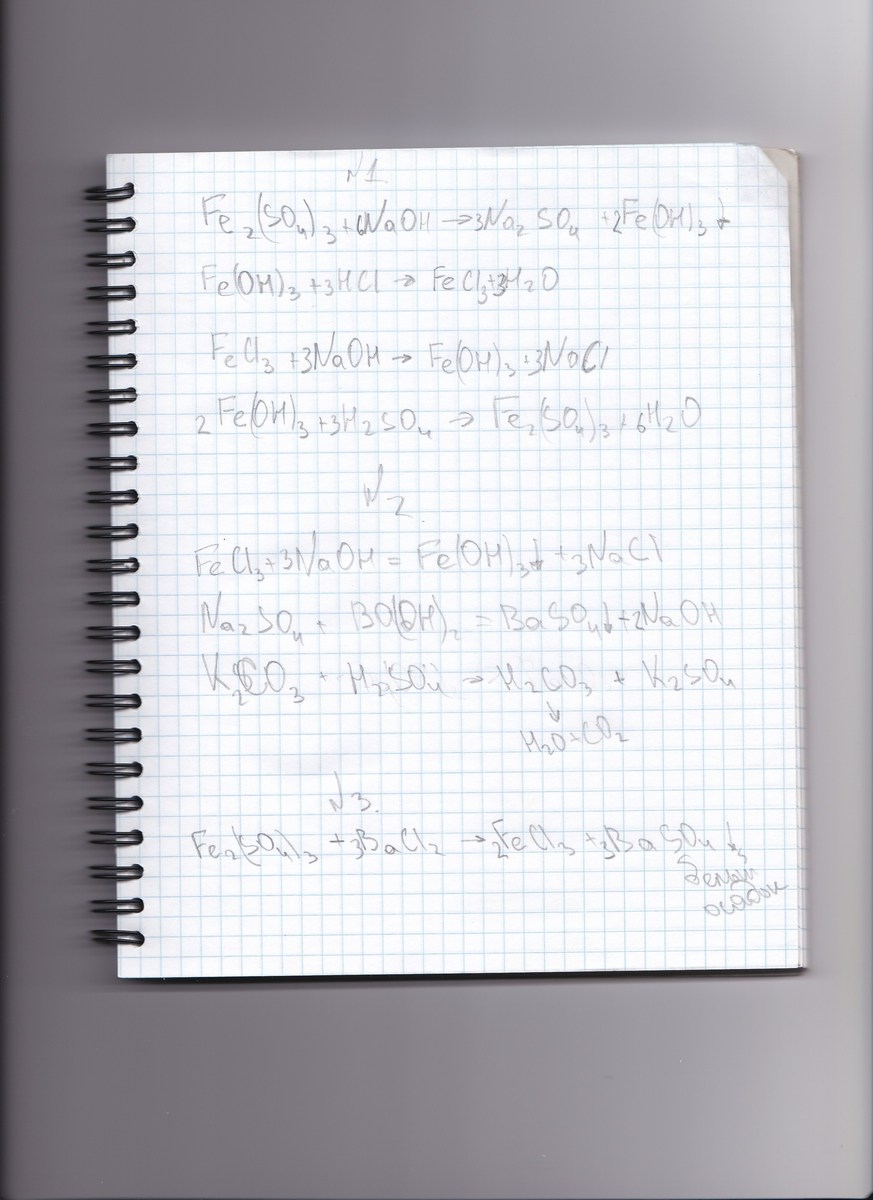 N1
Fe2(SO4)3+6NaOH →3Na2SO4 +2Fe(OH)3↓
Fe(OH)3+3HCl → FeCl3+3H2O
FeCl3 +3NaOH → Fe(OH)3+3NaCl
2Fe(OH)3+3H2SO4 → Fe2(SO4)3+6H2O
N2
FeCl3+3NaOH = Fe(OH)3↓ +3NaCl
Na2SO4 + BO(OH)2 = BaSO4↓+2NaOH
K2CO3 + H2SO4 → H2CO3 + K2SO4
↓
H2O+CO2
N3.
Fe2(SO4)3 +3BaCl2 →2FeCl3 +3BaSO4↓
белый
осадок